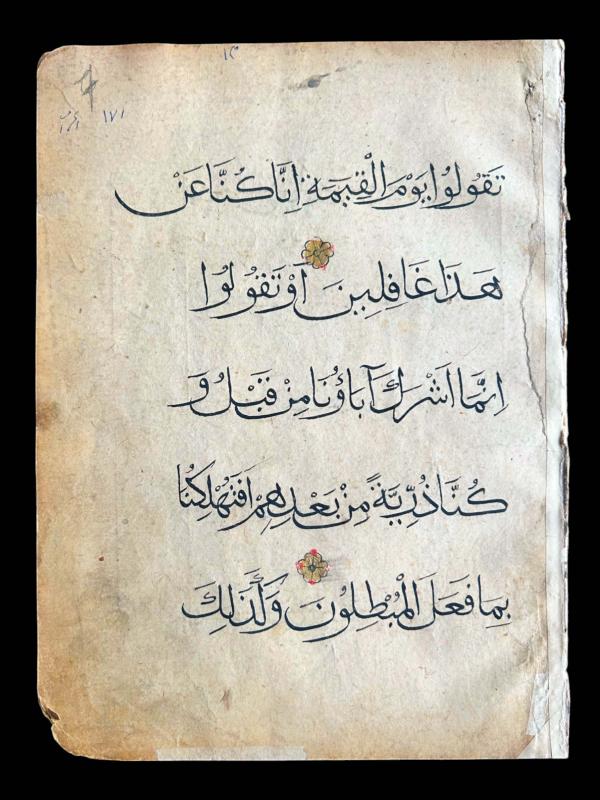 ١٧١
تَقُولُوا يَوْمَ الْقِيٰمَةِ اِنَّا كُنَّا عَنْ
هَذَا غَافِلِينَ اَوْ تَقُولُوا
اِنَّمَا اَشْرَكَ آبَاؤُنَا مِنْ قَبْلُ وَ
كُنَّا ذُرِّيَّةً مِنْ بَعْدِهِمْ اَفَتُهْلِكُنَا
بِمَا فَعَلَ الْمُبْطِلُونَ وَكَذَلِكَ